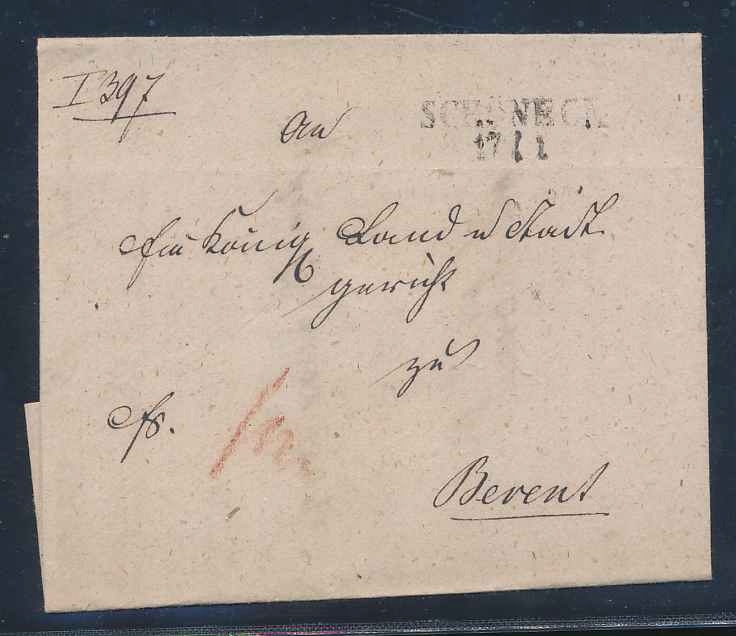 I 397
An
SCHÖNECK
17 / 1
Ein König Land u Stadt
gericht
zu
fr.
Berent